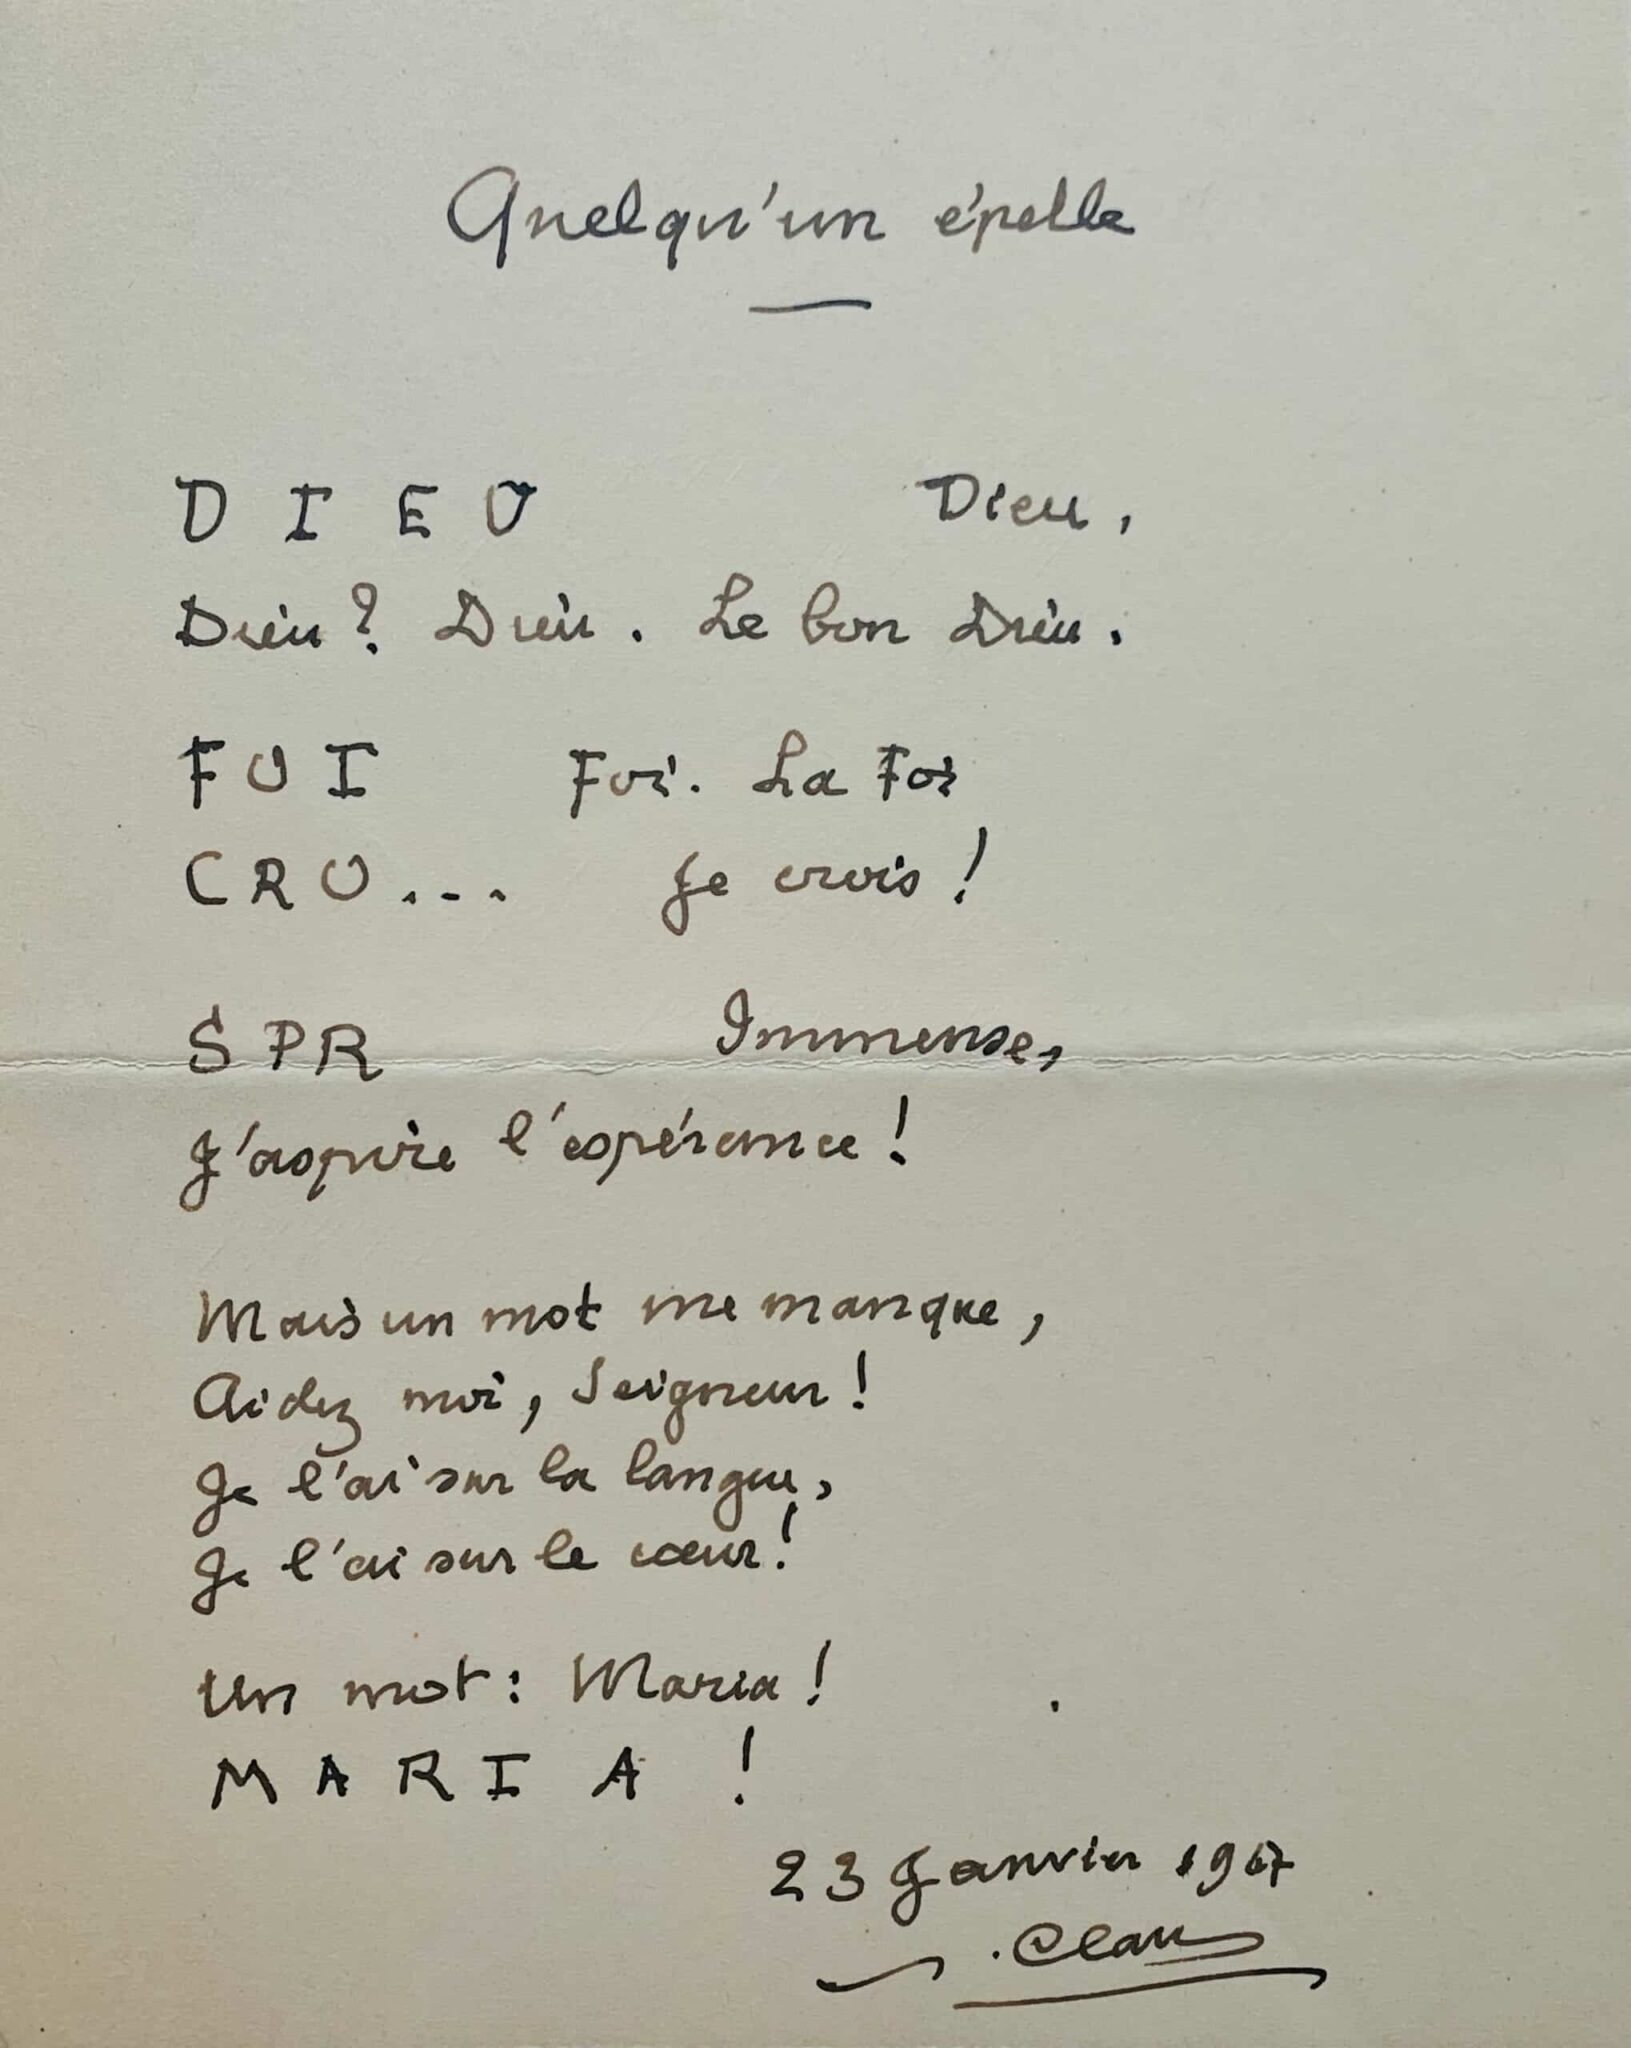 Quelqu'un épelle
D I E U Dieu,
Dieu? Dieu. Le bon Dieu.
F O I Foi. La Foi
C R O... Je crois!
S P R Immense,
J'aspire l'espérance!
Mais un mot me manque,
Aidez moi, Seigneur!
Je l'ai sur la langue,
Je l'ai sur le cœur!
Un mot: Maria!
M A R I A !
23 Janvier